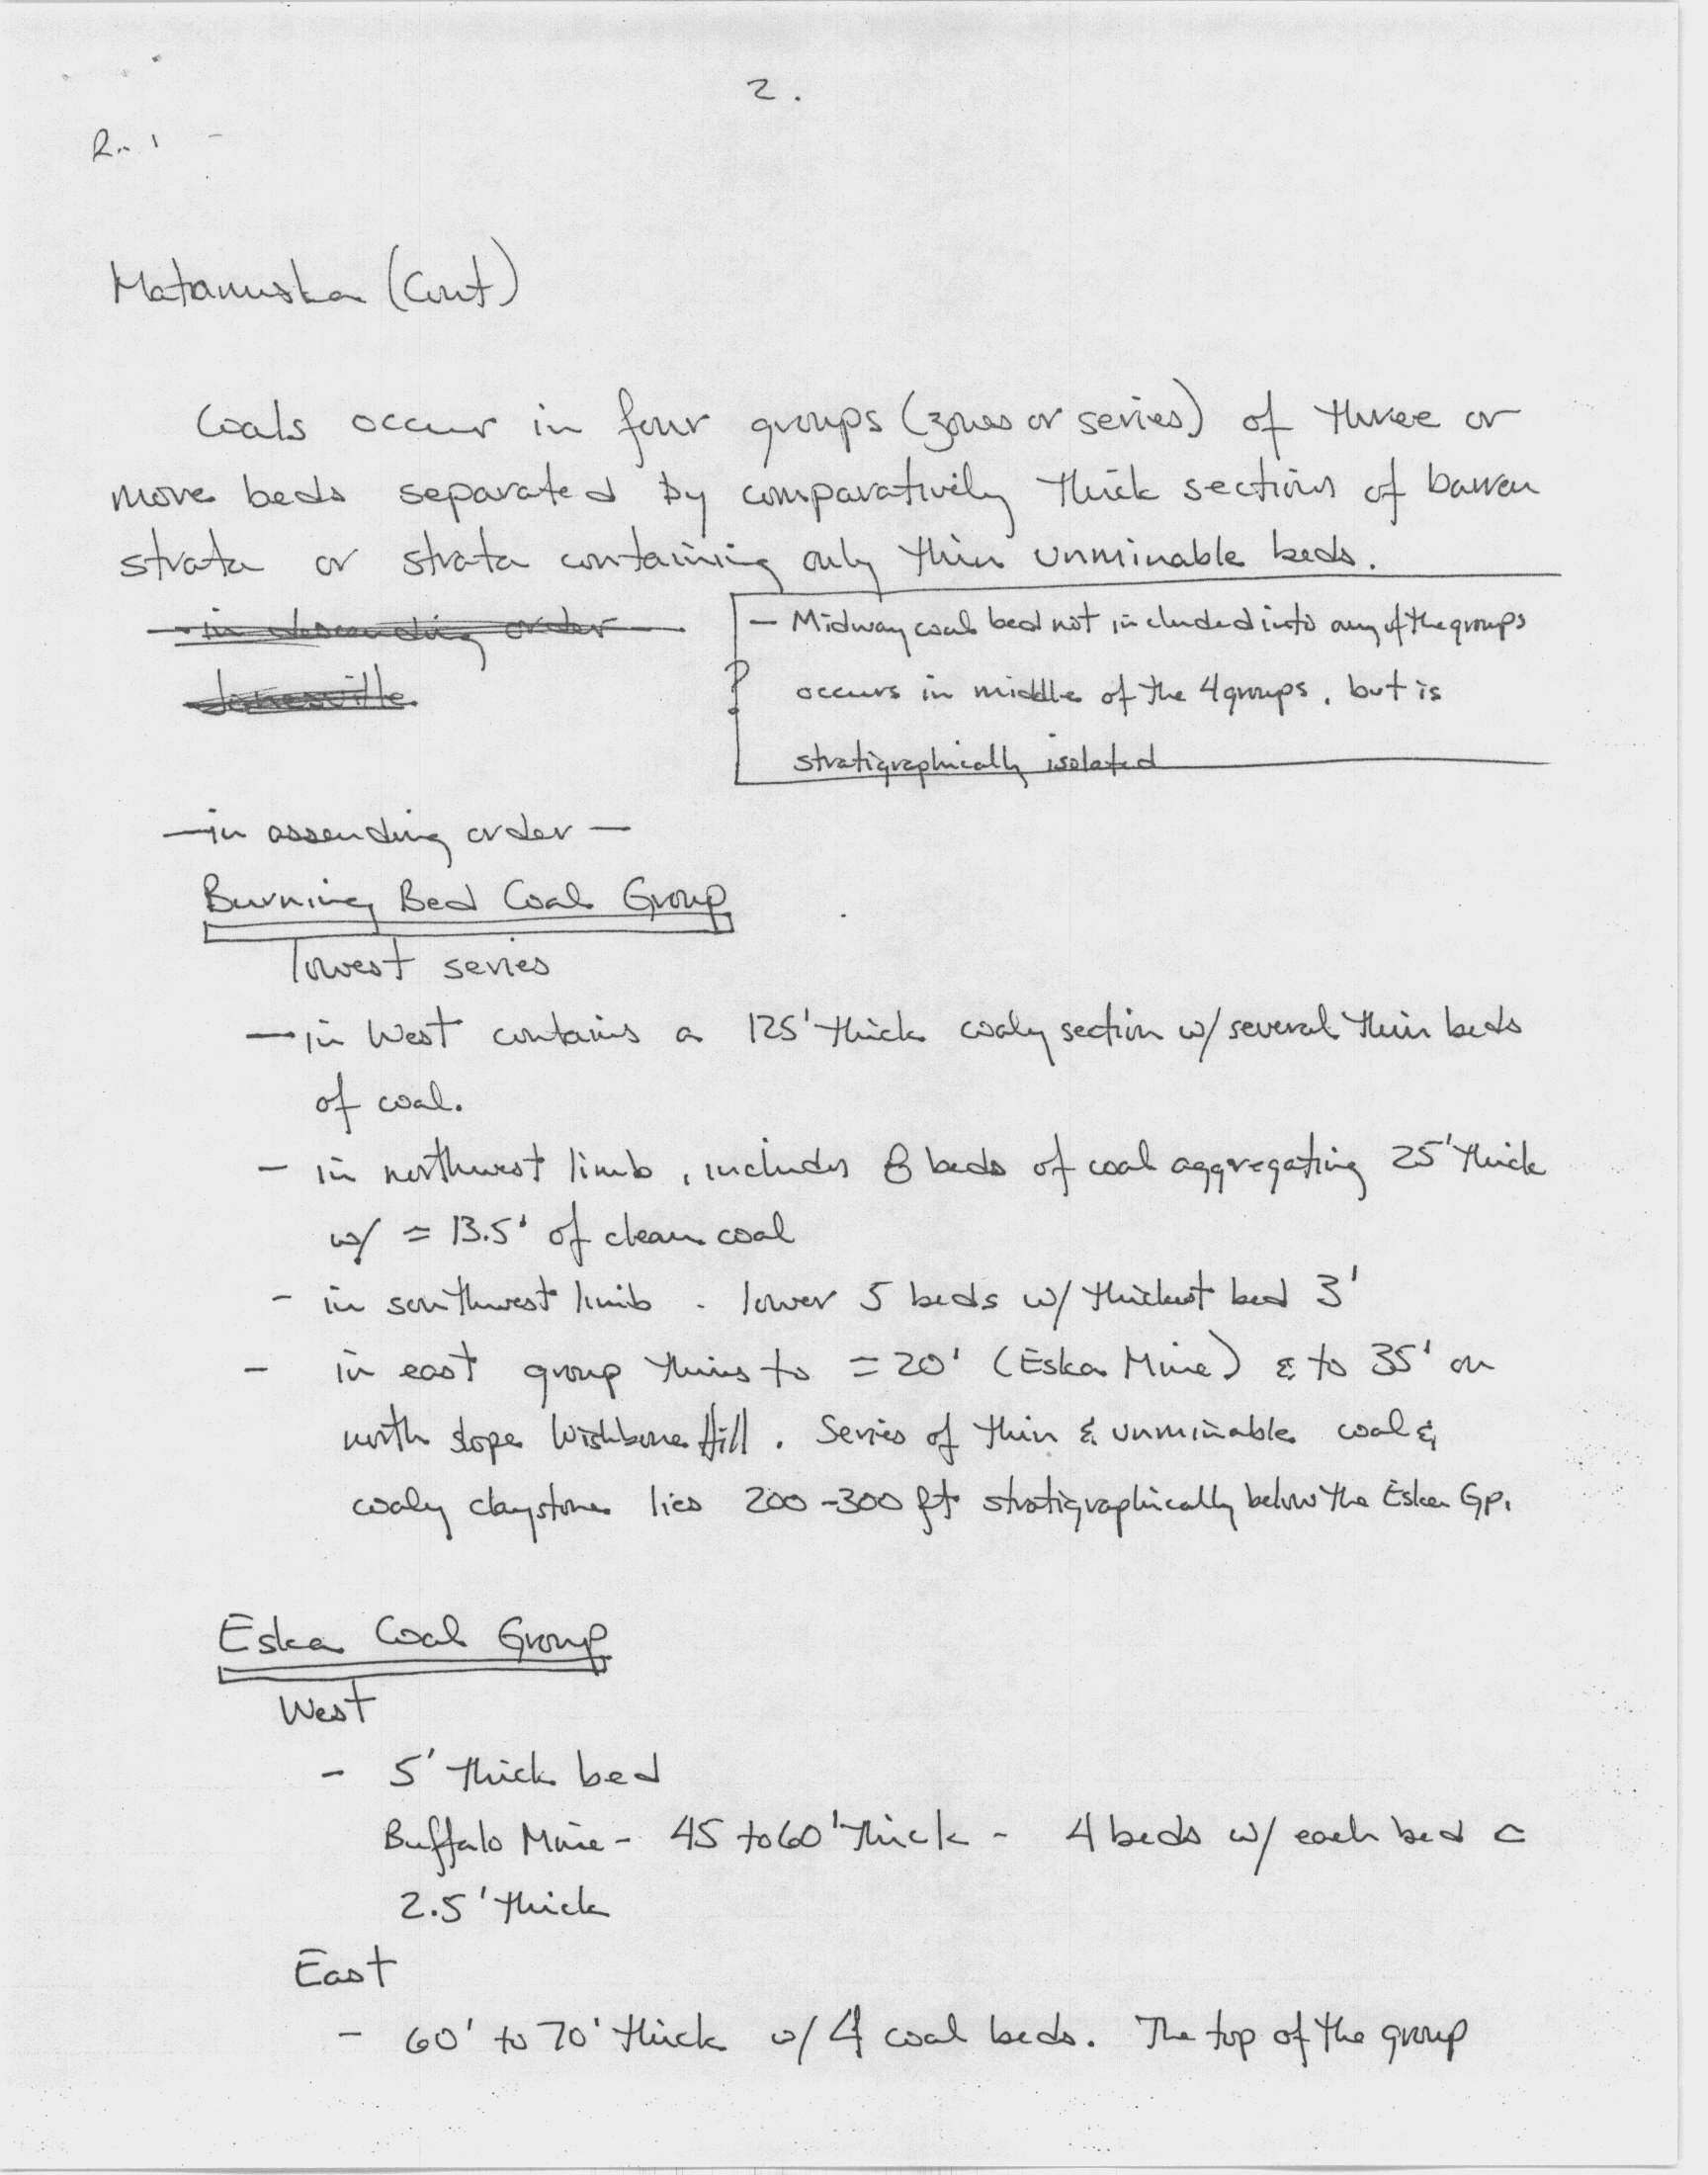 2.
Matanuska (Cont)
Coals occur in four groups (zones or series) of three or
more beds separated by comparatively thick sections of barren
strata or strata containing only thin unminable beds.
- in descending order -
Jonesville
- Midway coal bed not included into any of the groups
? occurs in middle of the 4 groups, but is
stratigraphically isolated
- in assending order -
Burning Bed Coal Group
lowest series
- in West contains a 125' thick coaly section w/ several thin beds
of coal.
- in northwest limb, includes 8 beds of coal aggregating 25' thick
w/ = 13.5' of clean coal
- in southwest limb - lower 5 beds w/ thickest bed 3'
- in east group thins to = 20' (Eska Mine) & to 35' on
north slope Wishbone Hill. Series of thin & unminable coal &
coaly claystone lies 200-300 ft stratigraphically below the Eska Gp.
Eska Coal Group
West
- 5' thick bed
Buffalo Mine - 45 to 60' thick - 4 beds w/ each bed <
2.5' thick
East
- 60' to 70' thick w/ 4 coal beds. The top of the group